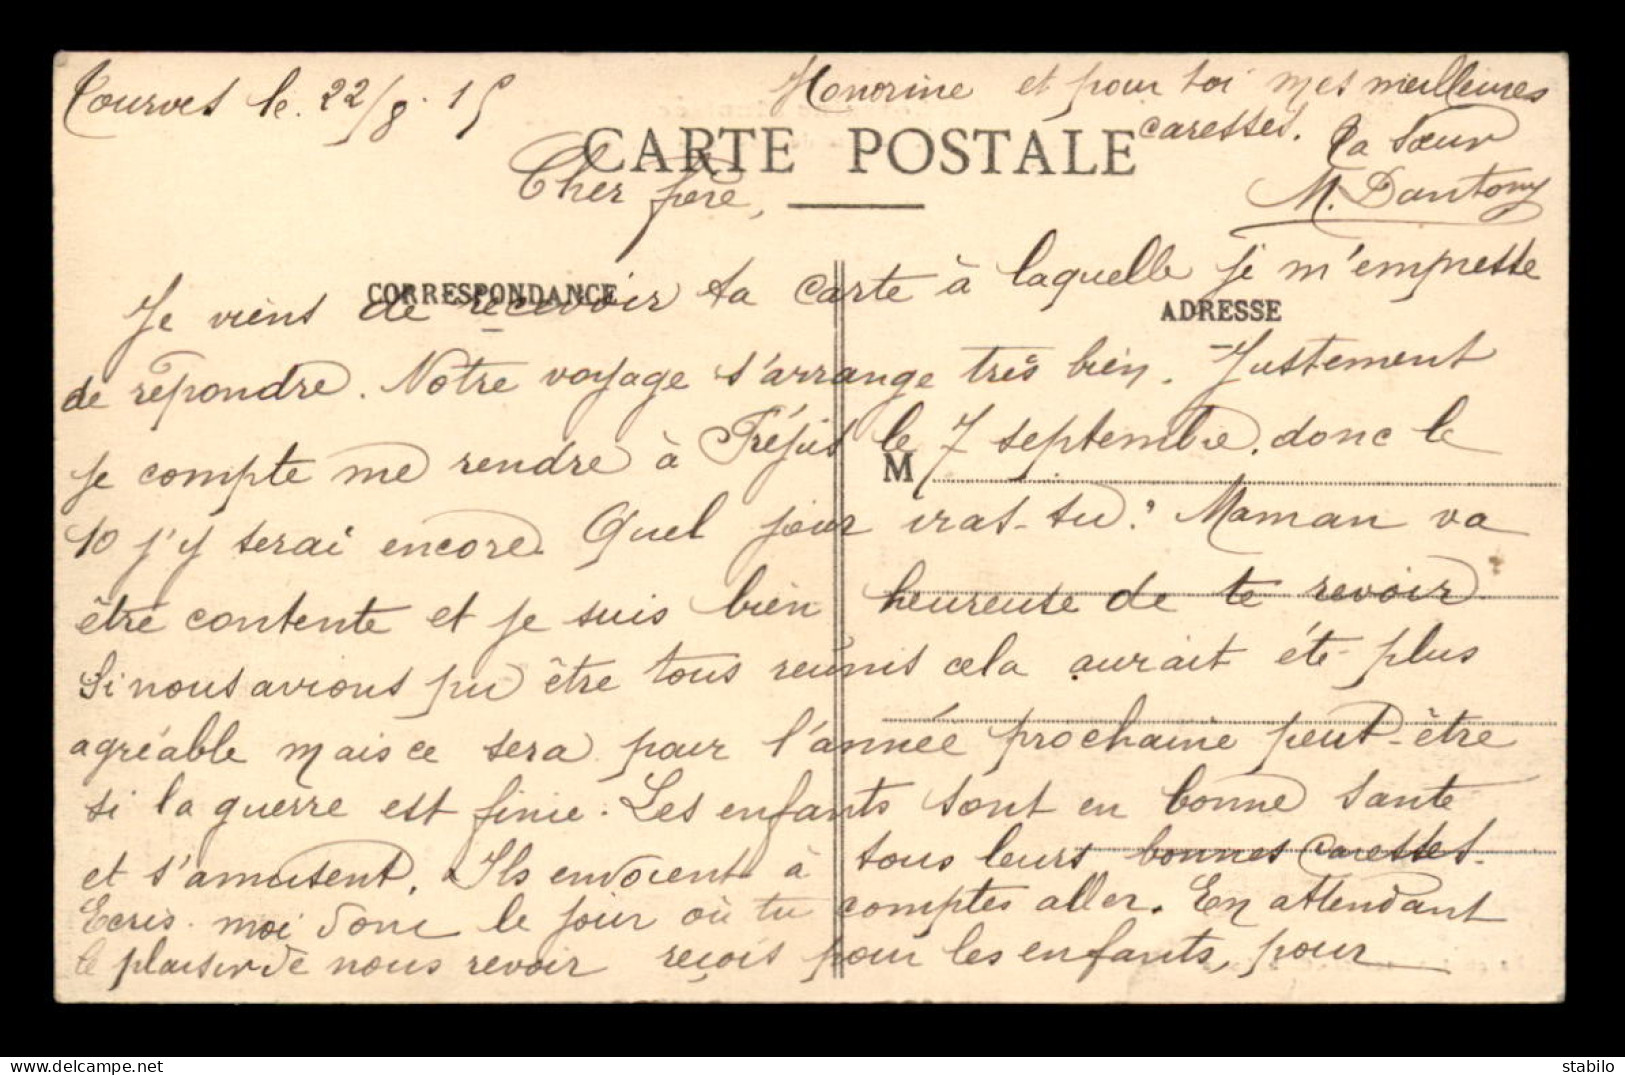 Tourves le 22/8.15
CARTE POSTALE
Cher frère,
CORRESPONDANCE
ADRESSE
M
Je viens de recevoir ta carte à laquelle je m'empresse
de répondre. Notre voyage s'arrange très bien. Justement
je compte me rendre à Fréjus le 7 septembre. donc le
10 j'y serai encore. Quel jour iras-tu? Maman va
être contente et je suis bien heureuse de te revoir.
Si nous avions pu être tous réunis cela aurait été plus
agréable mais ce sera pour l'année prochaine peut-être
si la guerre est finie. Les enfants sont en bonne santé
et s'amusent. Ils envoient à tous leurs bonnes caresses.
Ecris-moi donc le jour où tu comptes aller. En attendant
le plaisir de nous revoir reçois pour les enfants, pour
Honorine et pour toi mes meilleures
caresses. Ta sœur
M. Dantony
delcampe.net